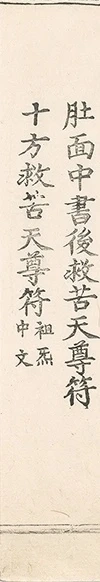 肚面中書後救苦天尊符
十方救苦天尊符
祖炁
中文